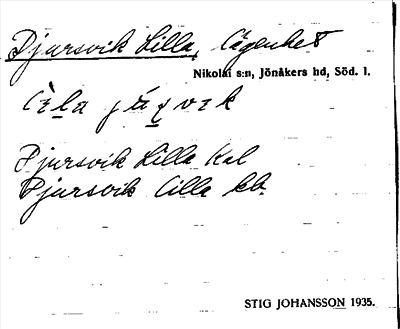 Djursvik Lilla, Lägenhet
Nikolai s:n, Jönåkers hd, Söd. l.
Djursvik Lilla Kal
Djursvik Lilla kb.
STIG JOHANSSON 1935.